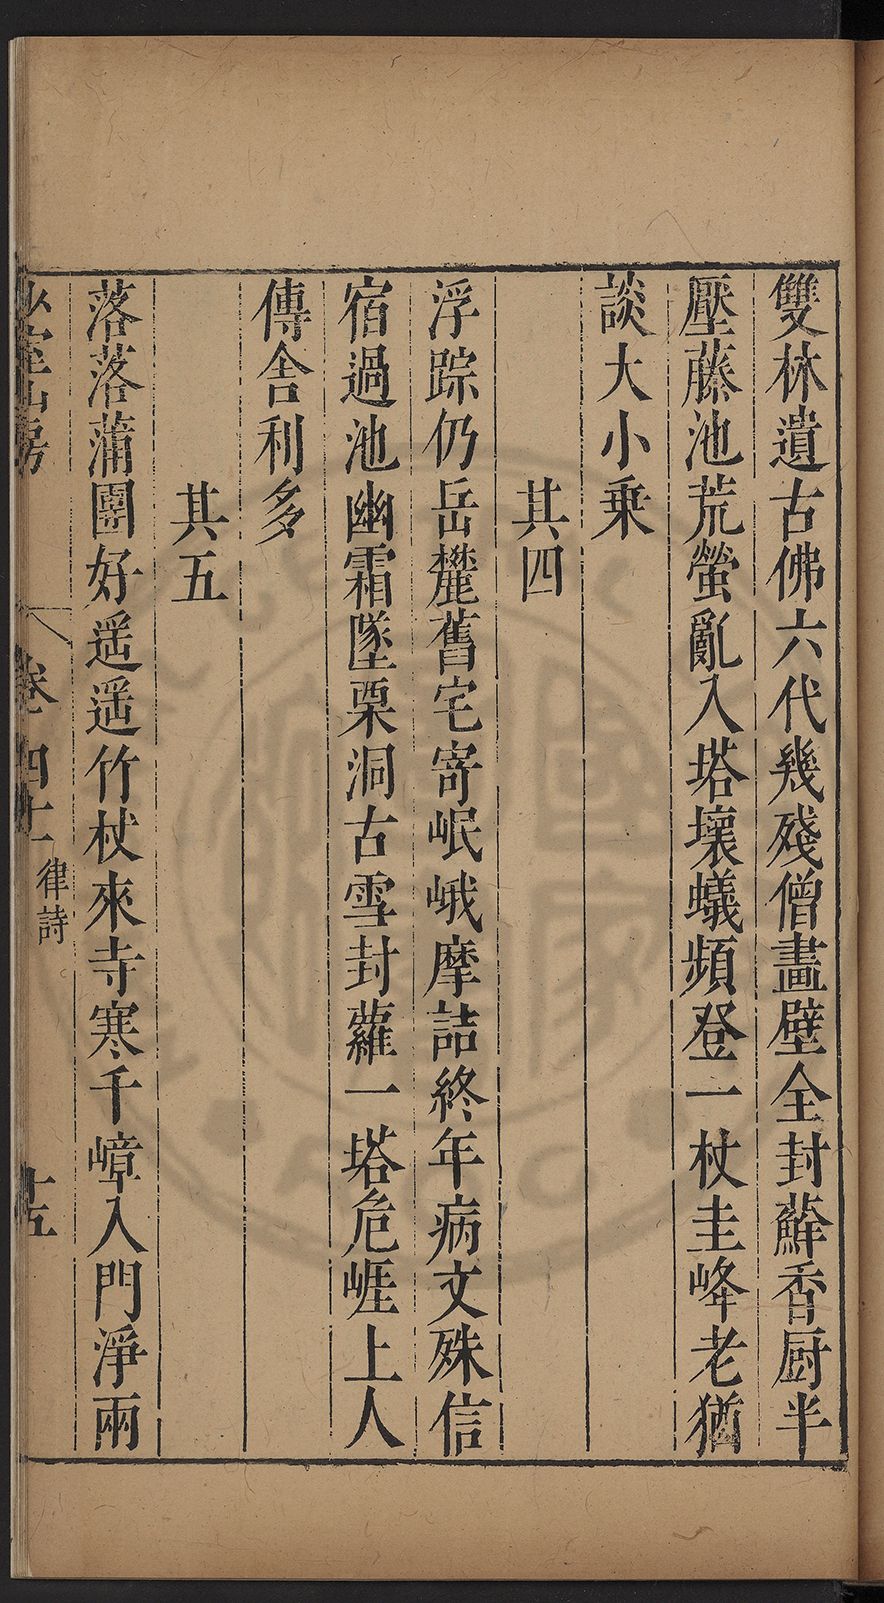 雙林遺古佛六代幾殘僧畫壁全封蘚香厨半
壓藤池荒螢亂入塔壞蟻頻登一杖圭峰老猶
談大小乗
其四
浮踪仍岳麓舊宅寄岷峨摩詰終年病文殊信
宿過池幽霜墜栗洞古雪封蘿一塔危崕上人
傳舍利多
其五
落落蒲團好遥遥竹杖來寺寒千嶂入門淨兩
山房
卷四十
律詩
十五